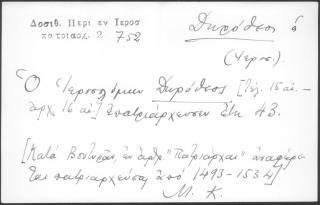 Δοσιθ. Περι εν Ιεροσ
πατριαρχ. 2 752
Δωρόθεος ὁ
(Ιεροσ.)
Ὁ Ἱεροσολύμων Δωρόθεος [τέλ. 15 αἰ. -
ἀρχ. 16 αἰ.] ἐπατριάρχευσεν ἔτη 43.
[Κατά Βουτυρᾶν, ἐν ἄρθρ. "Πατριάρχαι" ἀναφέρε-
ται πατριαρχεύσας ἀπό 1493-1534]
Μ. Κ.